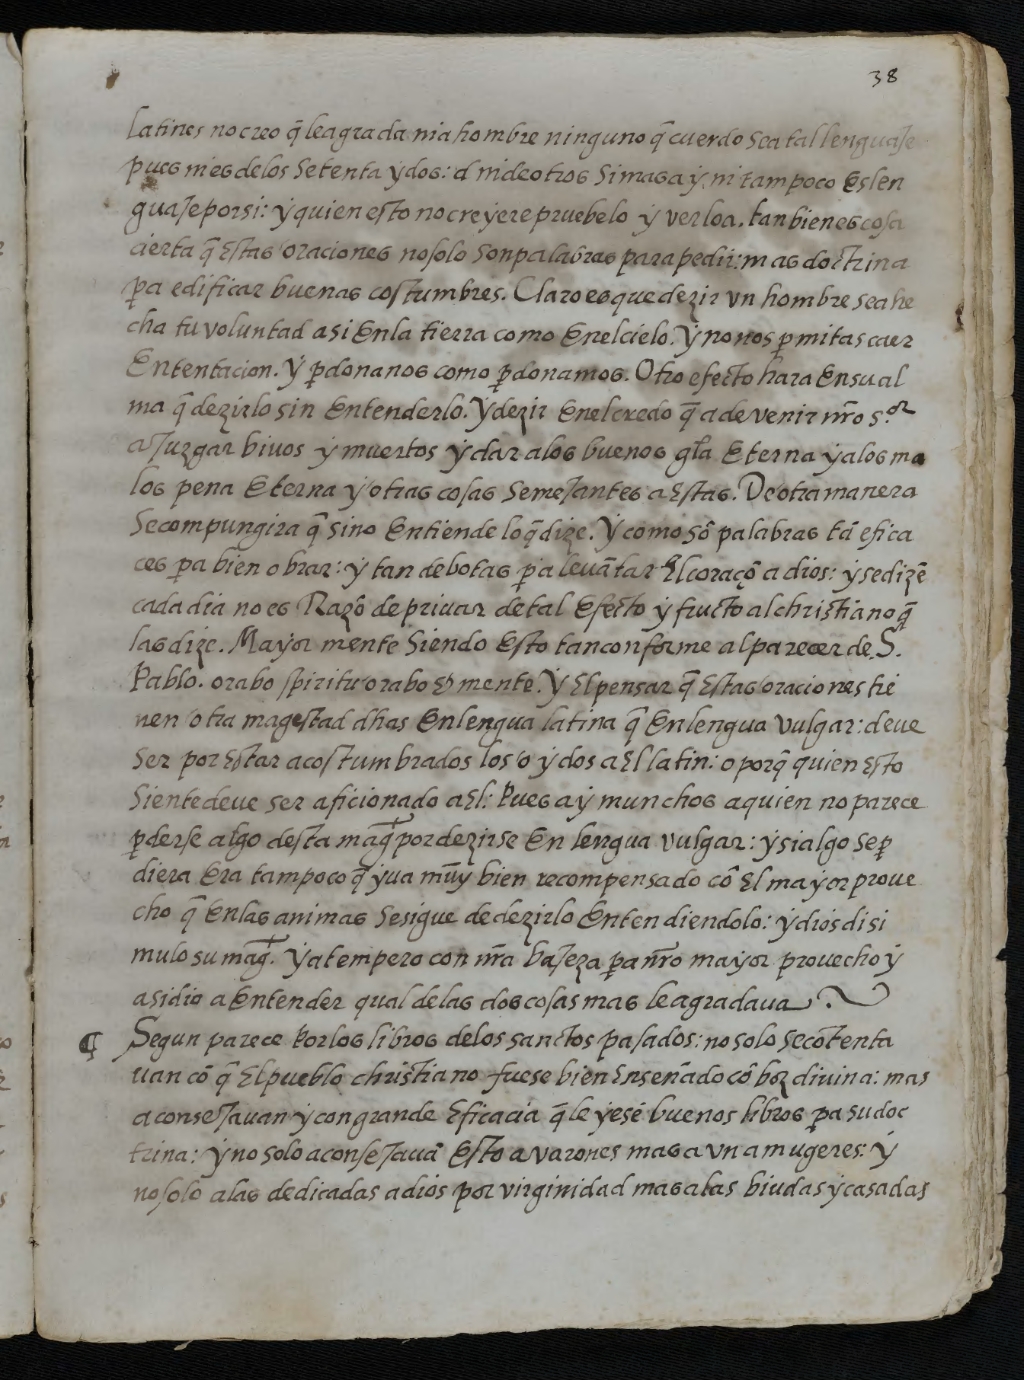 38
latines no creo q̃ le agrada ni a hombre ninguno q̃ cuerdo sea tal lenguaje
pues ni es de los setenta ẏ dos: ni de otros si mas aẏ, ni tampoco es len
guaje por si: ẏ quien esto no creẏere pruebelo ẏ verloa. tanbien es cosa
cierta q̃ estas oraciones no solo son palabras para pedir: mas doctrina
pa edificar buenas costumbres. Claro es que dezir vn hombre sea he
cha tu voluntad asi en la tierra como en el cielo. Ẏ no nos pmitas caer
en tentacion. Ẏ pdonanos como pdonamos. Otro efecto hara en su al
ma q̃ dezirlo sin entenderlo. Ẏ dezir en el credo q̃ a de venir nr̃o s.or
a juzgar bivos ẏ muertos ẏ dar a los buenos gl̃a eterna ẏ a los ma
los pena eterna ẏ otras cosas semejantes a estas. De otra manera
se compungira q̃ si no entiende lo q̃ dize. Ẏ como sõ palabras tã efica
ces pa bien obrar: ẏ tan debotas pa levãtar el coraçõ a dios: ẏ se dizẽ
cada dia no es Razõ de privar de tal efecto ẏ fructo al christiano q̃
las dize. Maẏor mente siendo esto tan conforme al parecer de. S.
Pablo. orabo spiritu orabo & mente. Ẏ el pensar q̃ estas oraciones tie
nen otra magestad dhas en lengua latina q̃ en lengua vulgar: deve
ser por estar acostumbrados los oẏdos a el latin: o porq̃ quien esto
siente deve ser aficionado a el: Pues aẏ munchos a quien no parece
pderse algo desta mag.t por dezirse en lengua vulgar: ẏ si algo se p
diera era tampoco q̃ ẏva muẏ bien recompensado cõ el maẏor prove
cho q̃ en las animas se sigue de dezirlo entendiendolo: ẏ dios disi
mulo su mag.t Ẏ atempero con nr̃a bajeza pa nr̃o maẏor provecho ẏ
asi dio a entender qual de las dos cosas mas le agradava.
¶ Segun parece por los libros de los sanctos pasados: no solo se cõtenta
van cõ q̃ el pueblo christiano fuese bien enseñado cõ boz divina: mas
aconsejavan ẏ con grande eficacia q̃ leẏesẽ buenos libros pa su doc
trina: Ẏ no solo aconsejavã esto a varones mas a vn a mugeres: Ẏ
no solo a las dedicadas a dios por virginidad mas a las biudas ẏ casadas